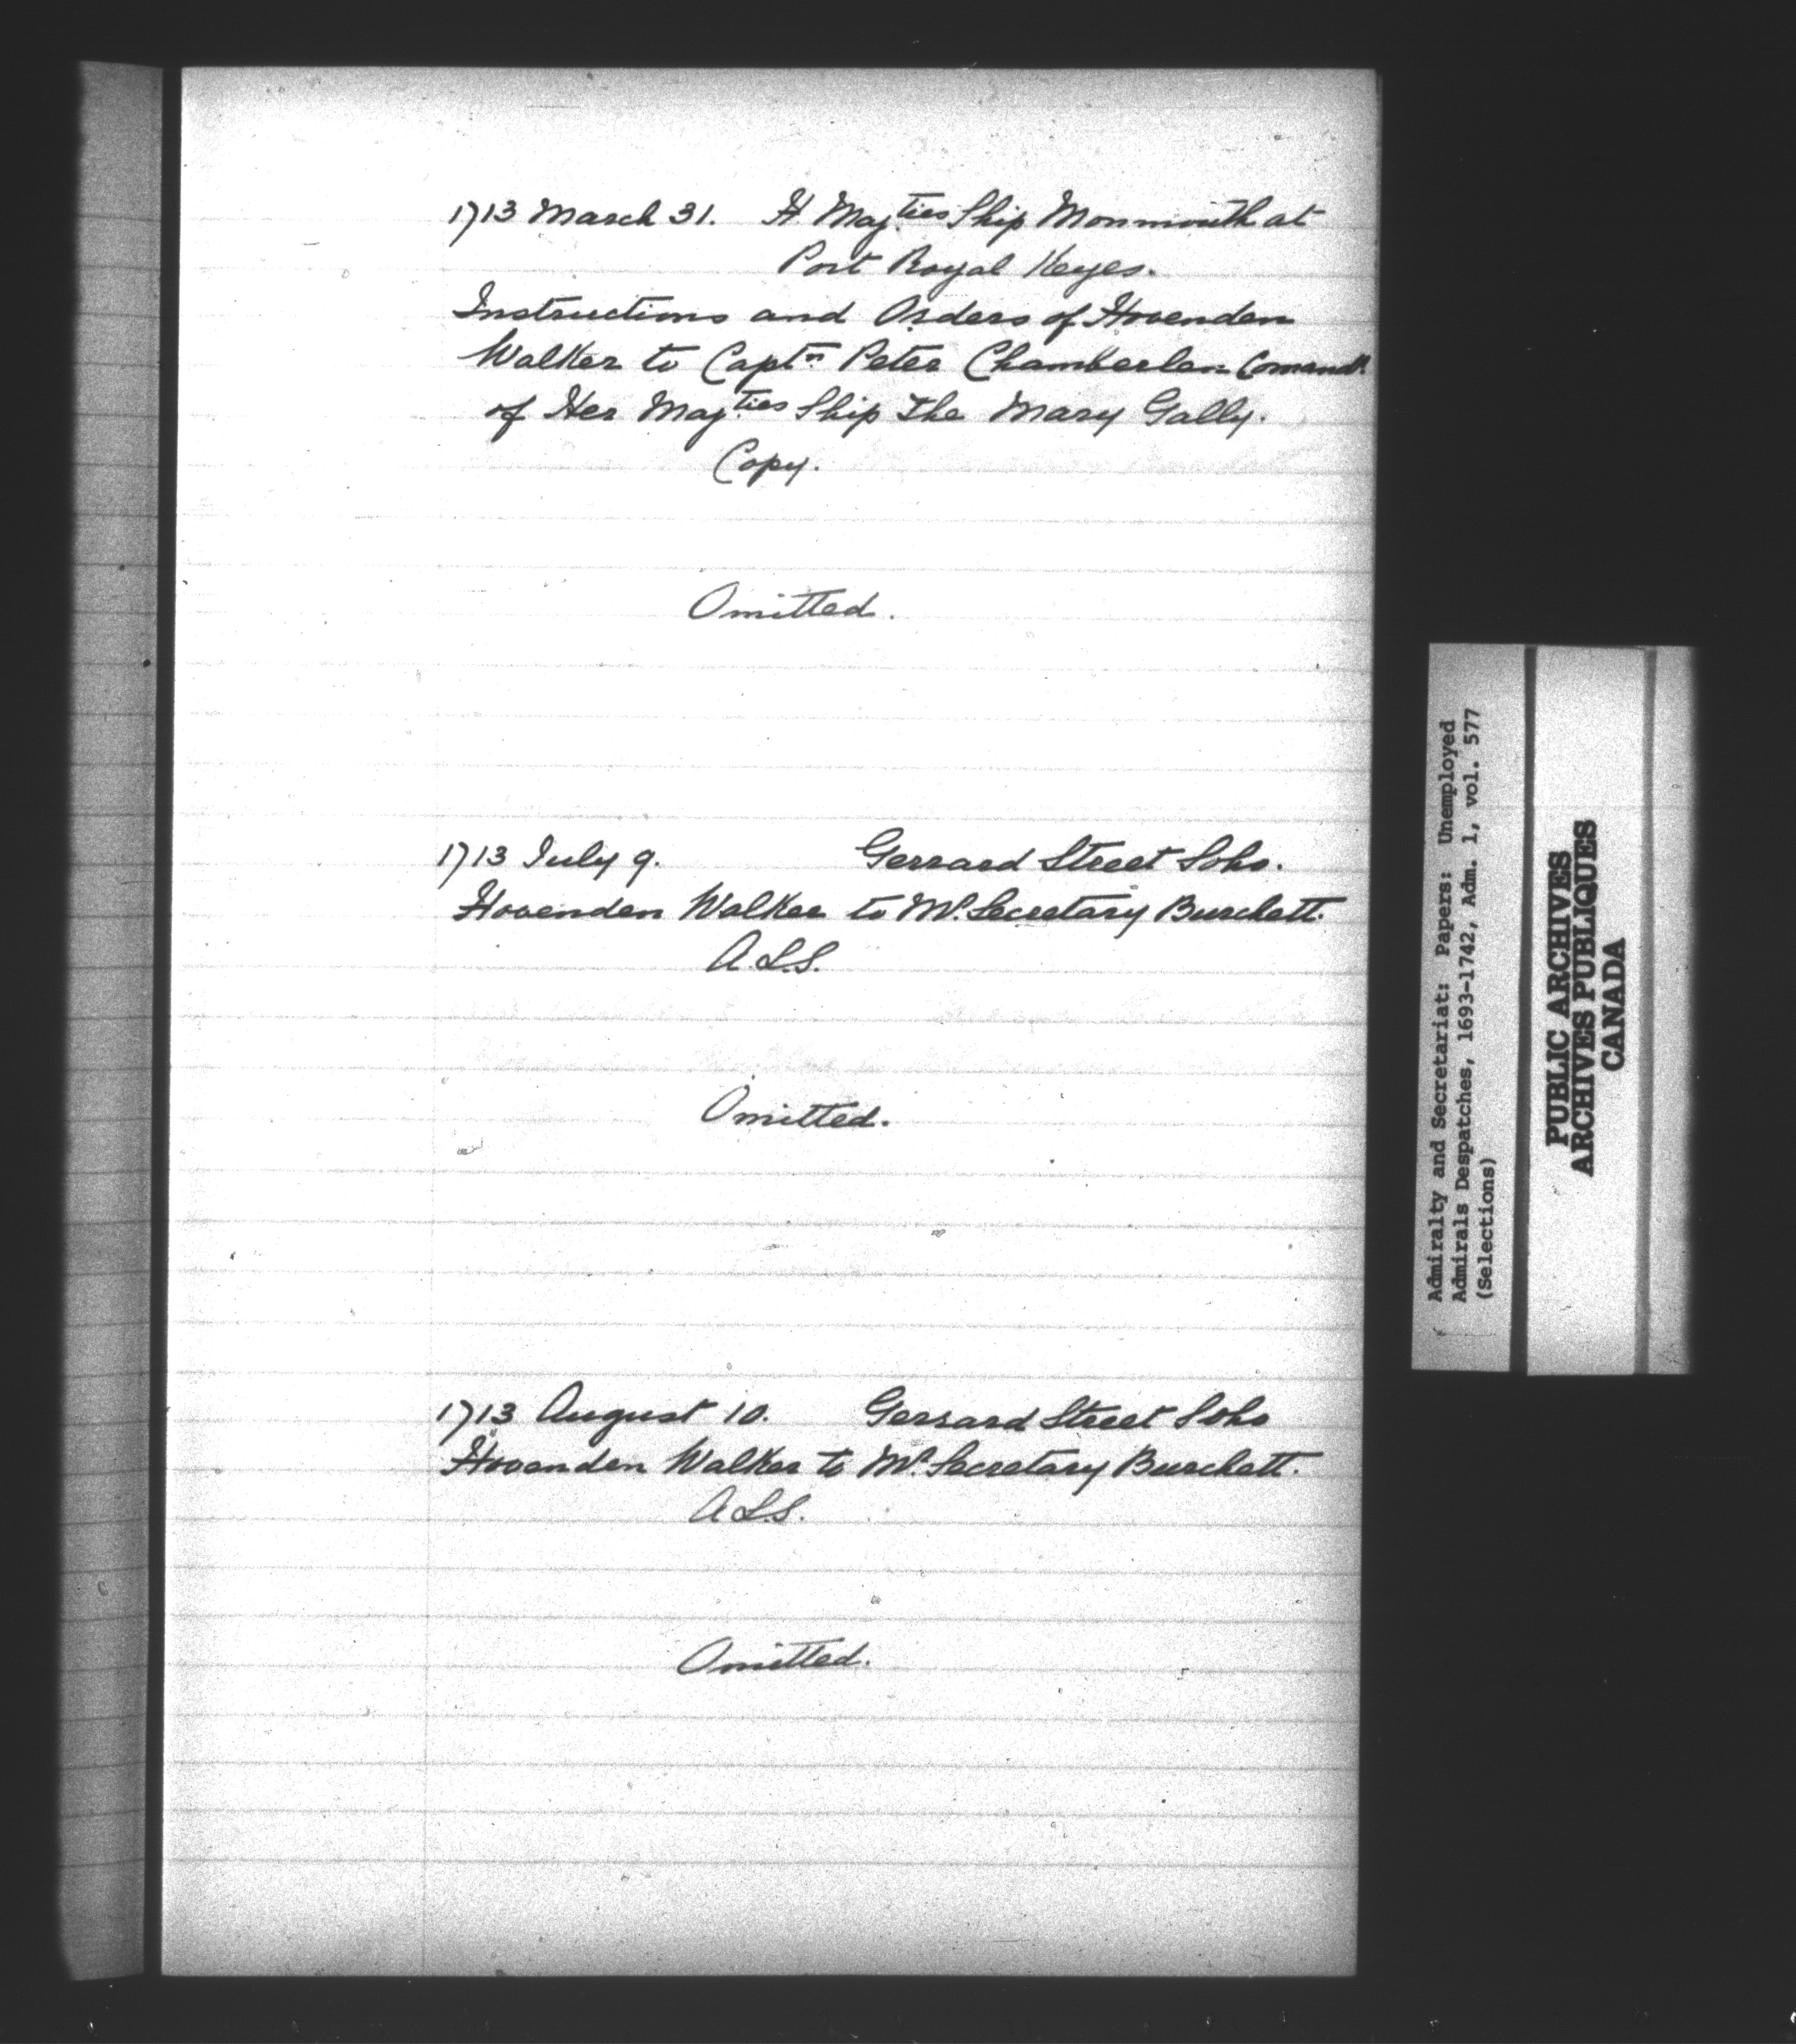 1713 March 31. H. Maj.ties Ship Monmouth at
Port Royal Keyes.
Instructions and Orders of Hovenden
Walker to Captn Peter Chamberlen Comandr
of Her Maj.ties Ship The Mary Gally.
Copy.
Omitted.
1713 July 9. Gerrard Street Soho.
Hovenden Walker to Mr. Secretary Burchett.
A.L.S.
Omitted.
1713 August 10. Gerrard Street Soho
Hovenden Walker to Mr. Secretary Burchett.
A L.S.
Omitted.
Admiralty and Secretariat: Papers: Unemployed
Admirals Despatches, 1693-1742, Adm. 1, vol. 577
(Selections)
PUBLIC ARCHIVES
ARCHIVES PUBLIQUES
CANADA